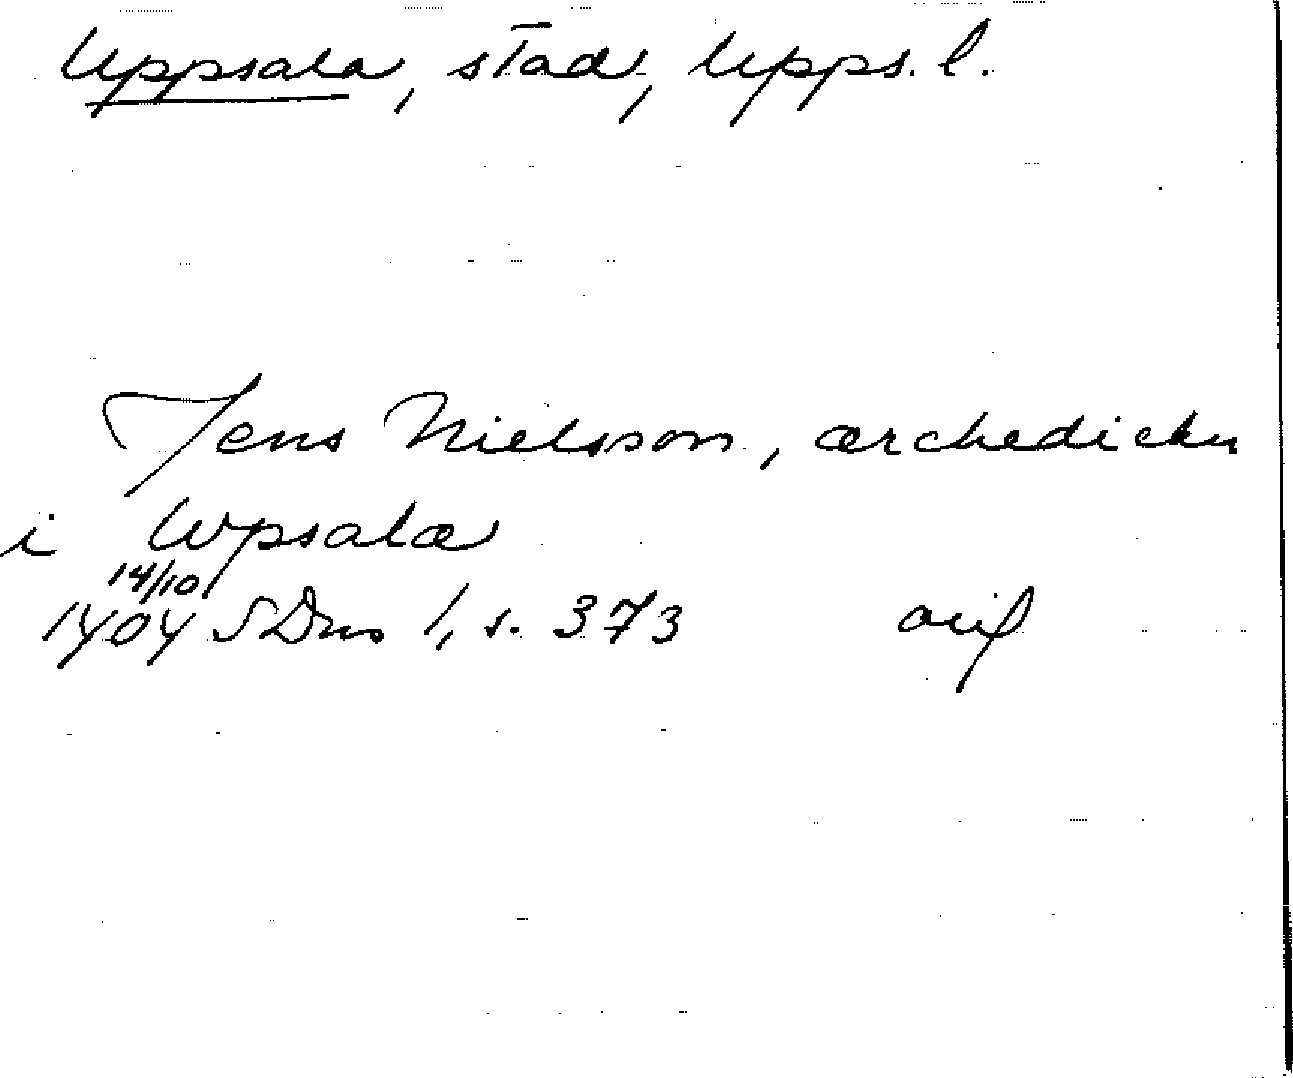 Uppsala, stad, Upps. l.
Jens Nielsson, ærchediekn
i Wpsalæ
14/10
1404 SDns 1, s. 373